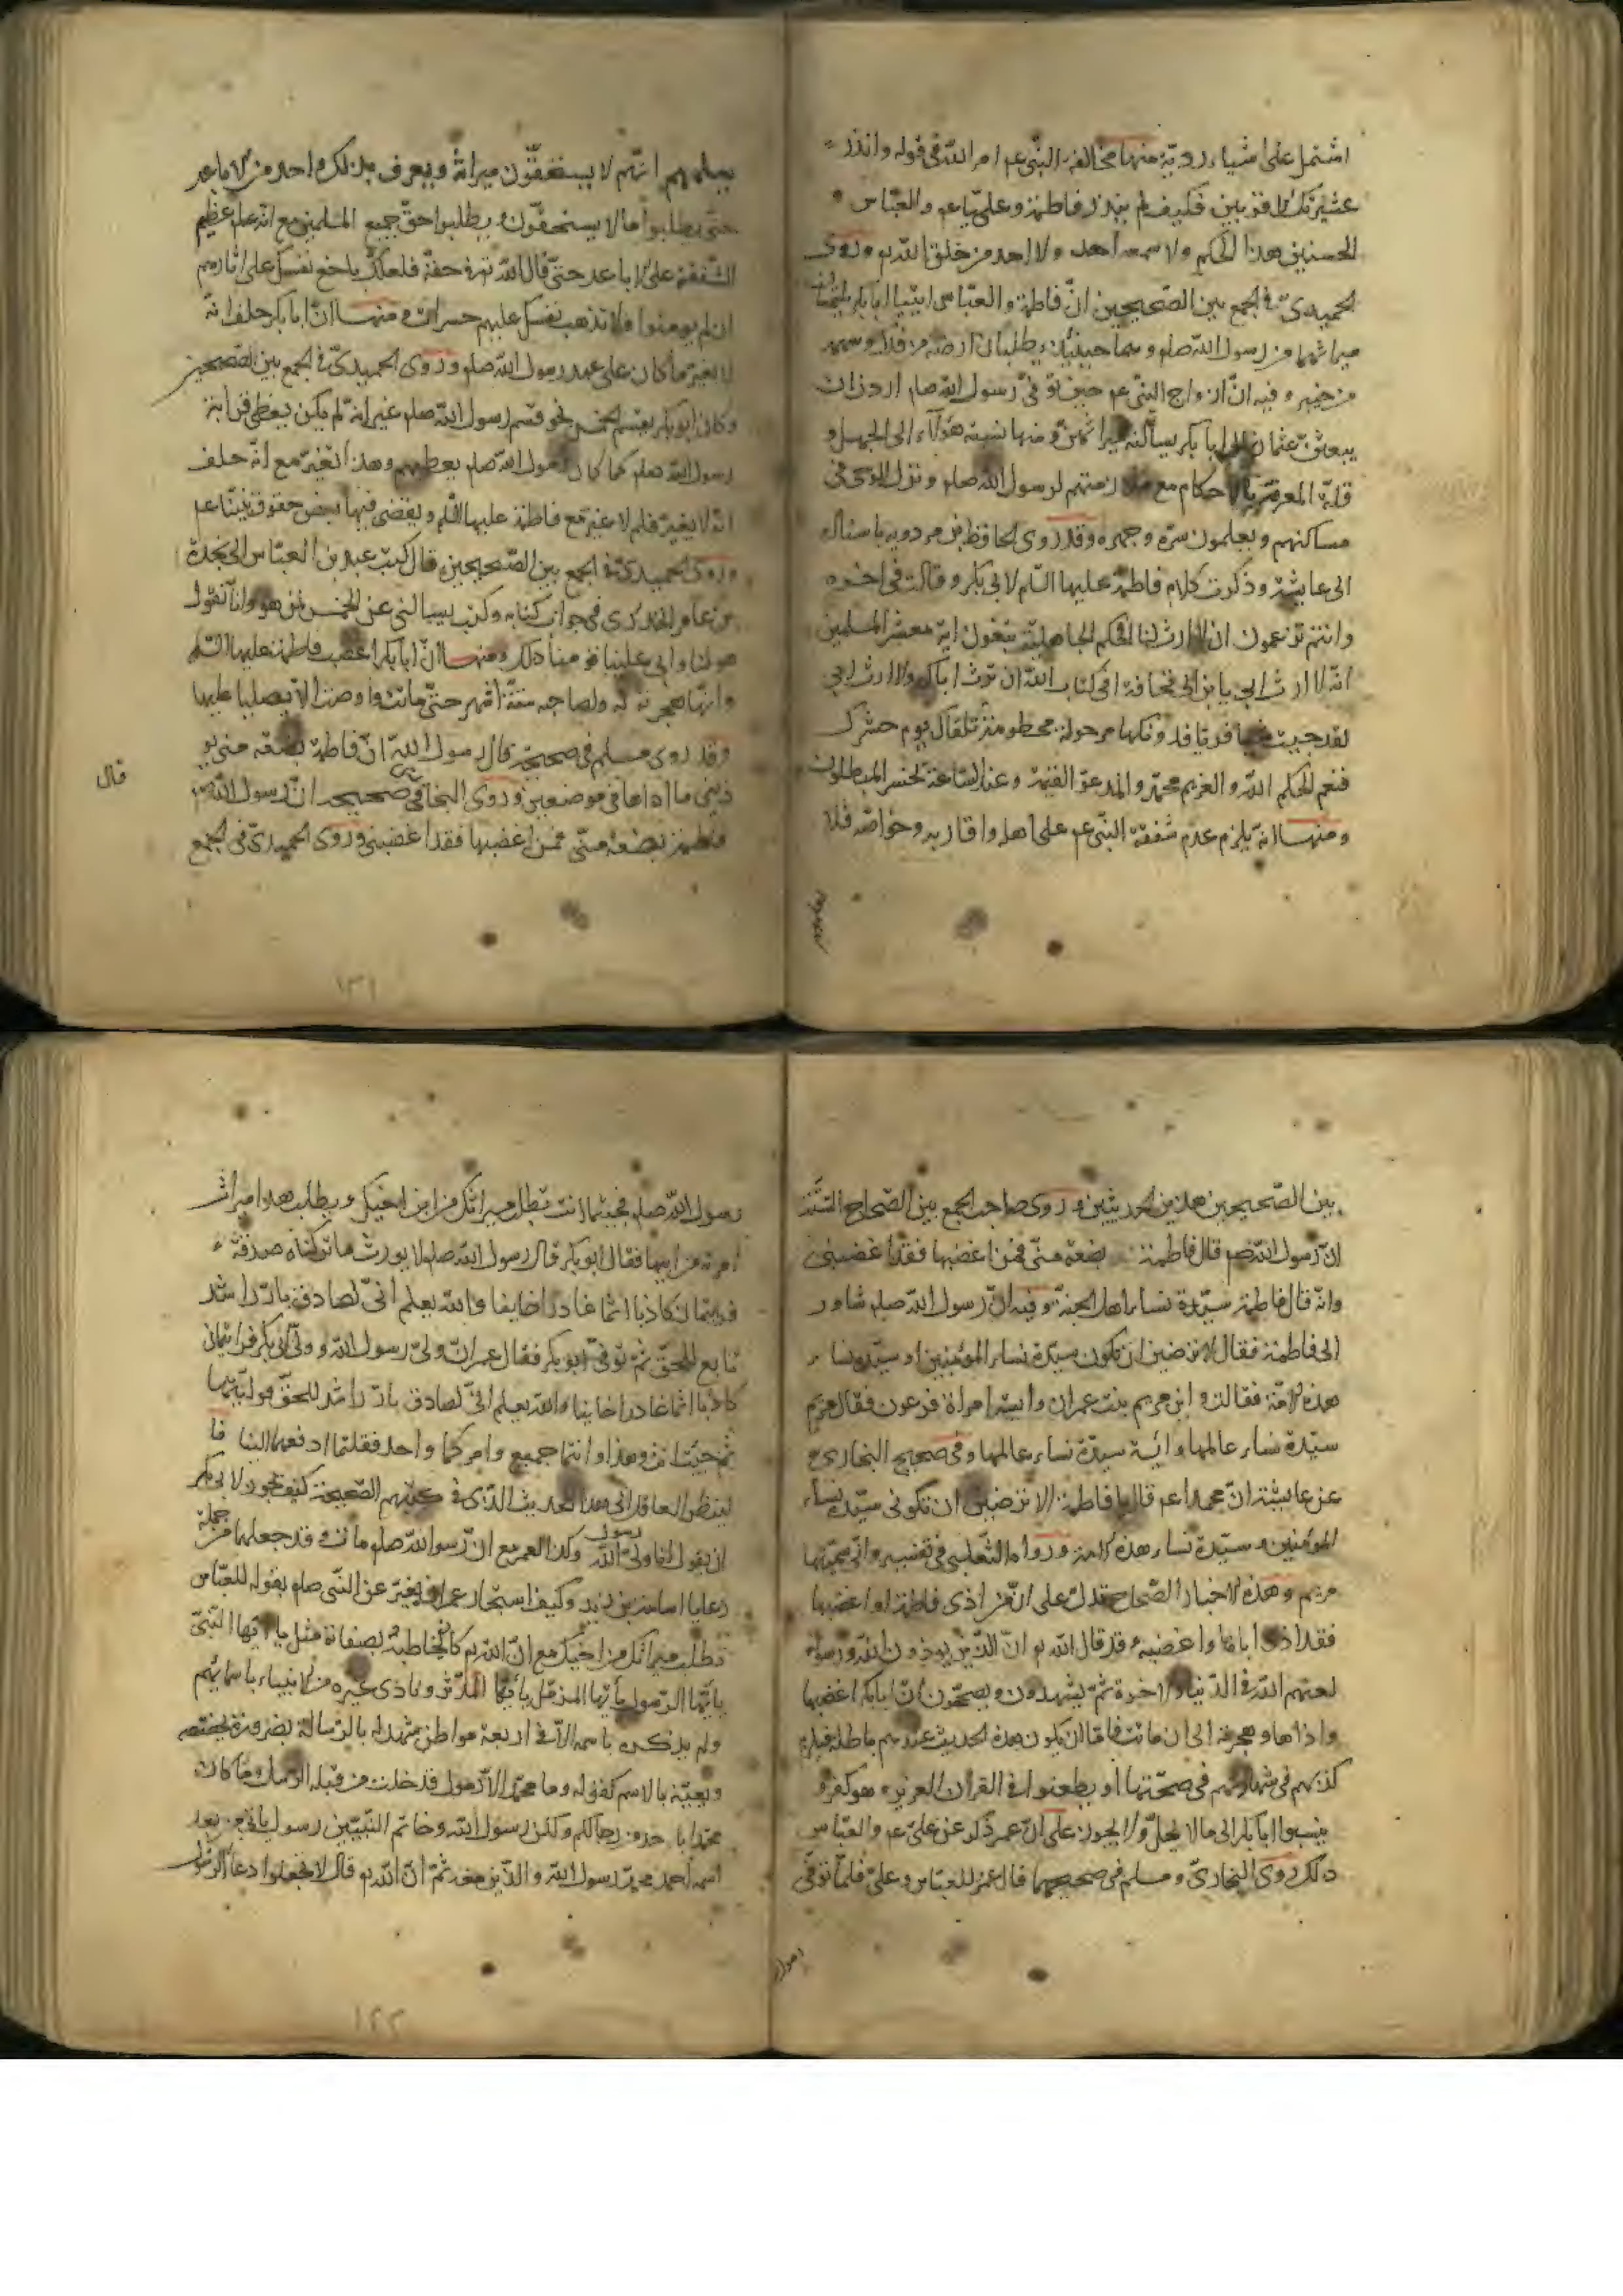 اشتمل على اشياء ردية منها مخالفة النبى عم امر الله فى قوله وانذر
عشيرتك الاقربين فكيف لم ينذر فاطمة وعليا عم والعباس
الحسنين هذا الحكم ولا سمعه احد ولا احد من خلق الله تم وروى
الحميدى فى الجمع بين الصحيحين ان فاطمة والعباس اتيا ابا بكر يلتمسان
ميراثهما من رسول الله صلم وهما حينئذ يطلبان ارضه من فدك وسهمه
من خيبر وفيه ان ازواج النبى عم حين توفى رسول الله صلم اردن ان
يبعثن عثمان الى ابا بكر يسألنه ميراثهن ومنها نسبة هؤلاء الى الجهل و
قلة المعرفة بالاحكام مع ملازمتهم لرسول الله صلم ونزول الوحى فى
مساكنهم ويعلمون سره وجهره وقد روى الحافظ بن مردويه باسناده
الى عايشة وذكرت كلام فاطمة عليها السلام لابى بكر وقالت فى اخره
وانتم تزعمون ان لا ارث لنا افحكم الجاهلية تبغون ايه معشر المسلمين
انه لا ارث ابى يا بن ابى قحافة افى كتاب الله ان ترث اباك ولا ارث ابى
لقد جئت شيئا فريا فدونكها مرحولة مخطومة تلقاك يوم حشرك
فنعم الحكم الله والغريم محمد والموعد القيمة وعند الساعة تخسر المبطلون
ومنها انه يلزم عدم شفقة النبى عم على اهله واقاربه وخواصه فلا
يعلمهم انهم لا يستحقون ميراثه ويعرف بذلك واحد من الاباعد
حتى يطلبوا ما لا يستحقون ويطلبوا حق جميع المسلمين مع انه عم عظيم
الشفقة على الاباعد حتى قال الله تم فى حقه فلعلك باخع نفسك على اثارهم
ان لم يومنوا فلا تذهب نفسك عليهم حسرات ومنها ان ابا بكر حلف انه
لا يغير ما كان على عهد رسول الله صلم وروى الحميدى فى الجمع بين الصحيحين
وكان ابو بكر يقسم الخمس نحو قسم رسول الله صلم غير انه لم يكن يعطى قرابة
رسول الله صلم كما كان رسول الله صلم يعطيهم وهذا تغير مع انه حلف
انه لا يغير فلم لا غير مع فاطمة عليها السلم ويقضى فيها بعض حقوق نبينا عم
وروى الحميدى فى الجمع بين الصحيحين قال كتب عبد بن العباس الى نجدة
بن عامر الحرورى فى جواب كتابه وكتب يسالنى عن الخمس لمن هو وانا نقول
هو لنا وابى علينا قومنا ذلك ومنها ان ابا بكر اغضب فاطمة عليها السلم
وانها هجرته ولصاحبه ستة اشهر حتى ماتت واوصت الا يصليا عليها
وقد روى مسلم فى صحيحه قال رسول الله ان فاطمة بضعة منى يو
ذينى ما اذاها فى موضعين وروى البخارى فى صحيحه ان رسول الله صم
فاطمة بضعة منى فمن اغضبها فقد اغضبنى وروى الحميدى فى الجمع
قال
١٣١
بين الصحيحين هذين الحديثين وروى صاحب الجمع بين الصحاح الستة
ان رسول الله صم قال فاطمة بضعة منى فمن اغضبها فقد اغضبنى
وانه قال فاطمة سيدة نساء اهل الجنة وفيه ان رسول الله صلم شاور
الى فاطمة فقال الا ترضين ان تكون سيدة نساء المؤمنين او سيدة نساء
هذه الامة فقالت واين مريم بنت عمران واسية امراة فرعون فقال مريم
سيدة نساء عالمها واسية سيدة نساء عالمها وفى صحيح البخارى
عن عايشة ان محمدا عم قال يا فاطمة الا ترضين ان تكونى سيدة نساء
المؤمنين و سيدة نساء هذه الامة ورواه الثعلبى فى تفسير وانى سميتها
مريم وهذه الاخبار الصحاح تدل على ان من اذى فاطمة او اغضبها
فقد اذى اباها واغضبه وقد قال الله تم ان الذين يوذون الله ورسوله
لعنهم الله فى الدنيا والاخرة ثم يشهدون ويصححون ان ابا بكر اغضبها
واذاها وهجرته الى ان ماتت فاما ان يكون هذه الحديث عندهم باطلة فيلزم
كذبهم فى شهادتهم فى صحتها او يطعنوا فى القران العزيز وهو كفر و
ينسبوا ابا بكر الى ما لا يحل ولا يجوز على ان عمر ذكر عن على عم والعباس
ذلك روى البخارى ومسلم فى صحيحهما قال عمر للعباس وعلى فلما توفى
رسول
رسول الله صلم فجئتما انت تطلب ميراثك من ابن اخيك ويطلب هذا ميراث
امرته من ابيها فقال ابو بكر قال رسول الله صلم لا يورث ما تركناه صدقة
فرايتمان كاذبا اثما غادرا خاينا والله يعلم انى لصادق بار راشد
تابع للحق ثم توفى ابو بكر فقال عمر ان ولى رسول الله وولى ابى بكر فرايتمانى
كاذبا اثما غادرا خاينا والله يعلم انى لصادق بار راشد للحق فوليتهما
ثم جئت انت وهذا وانتما جميع وامركما واحد فقلتما ادفعها الينا فا
لينظر العاقل الى هذا الحديث الذى فى كتبهم الصحيحة كيف يجوز لابى بكر
ان يقول انا ولى رسول الله وكذا لعمر مع ان رسول الله صلم مات وقد جعلهما من جملة
رعايا اسامة بن زيد وكيف استجاز عمر ان يعبر عن النبى صلم بقوله للعباس
تطلب ميراثك من اخيك مع ان الله تم كان يخاطبه بصفاته مثل يا ايها النبى
يا ايها الرسول يا ايها المزمل يا ايها المدثر ونادى غيره من الانبياء باسمايهم
ولم يذكره باسمه الا فى اربعة مواطن شهد له بالرسالة بضرورة تخصصه
وتعينه بالاسم كقوله وما محمد الا رسول قد خلت من قبله الرسل وما كان
محمد ابا احد من رجالكم ولكن رسول الله وخاتم النبيين رسول ياتى من بعد
اسمه احمد محمد رسول الله والذين معه ثم ان الله تم قال لا تجعلوا دعاء الرسول
١٣٢